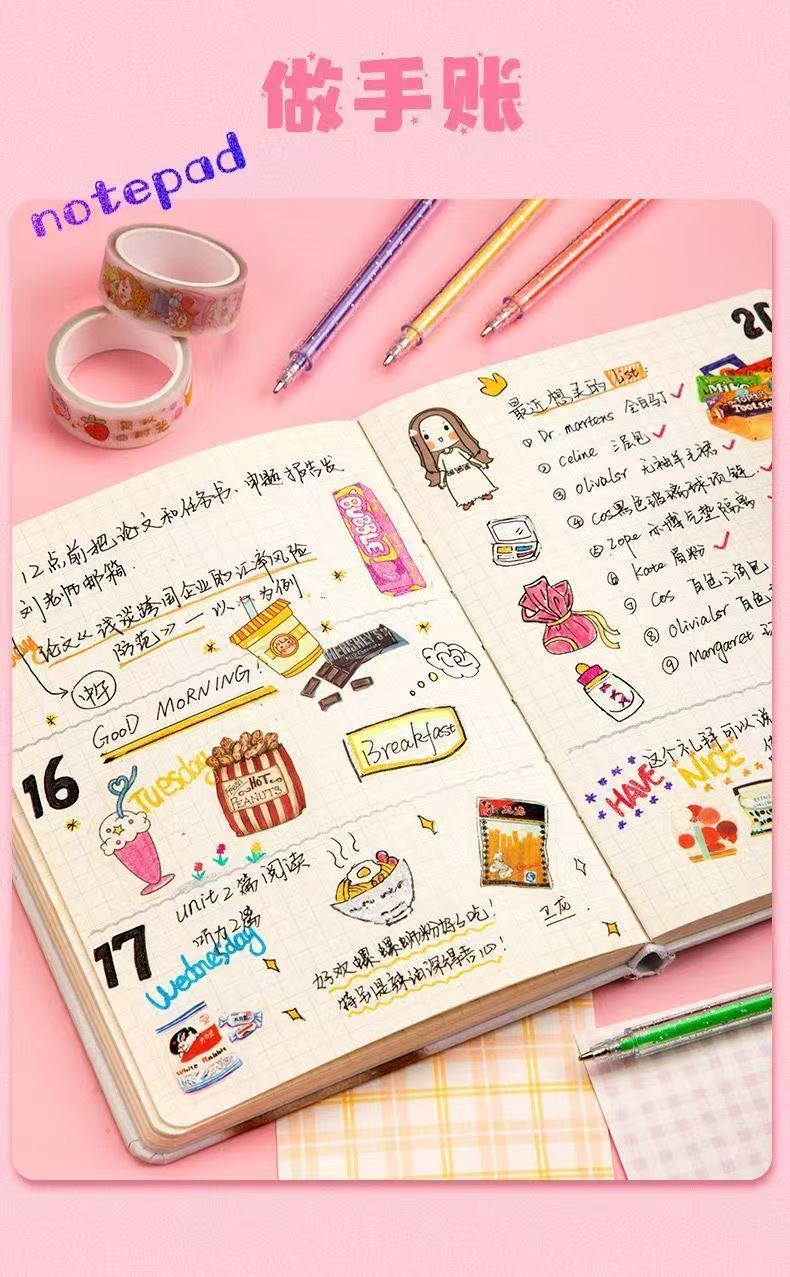 做手账
notepad
12点前把论文和任务书、申题报告发
刘老师邮箱.
论文《浅谈跨国企业的汇率风险
防范》— 以 为例
中午
GOOD MORNING!
16
Tuesday
BUBBLE
HERSHEY'S
Breakfast
HOT
PEANUTS
unit 2篇阅读
听力2篇
17
Wednesday
White Rabbit
好欢螺螺蛳粉好好吃!
特别是辣油深得吾心!
卫龙
20
最近想买的 list:
① Dr. martens 全自马丁
② Celine 三层包
③ Olivalsr 无袖羊毛裙
④ Cos黑色玻璃球项链
⑤ Zope 亦博气垫隔离
⑥ Kate 眉粉
⑦ Cos 白色三角包
⑧ Olivialsr 白色
⑨ Margaret
Milk
TOOTSIE
这个礼拜可以说
HAVE NICE